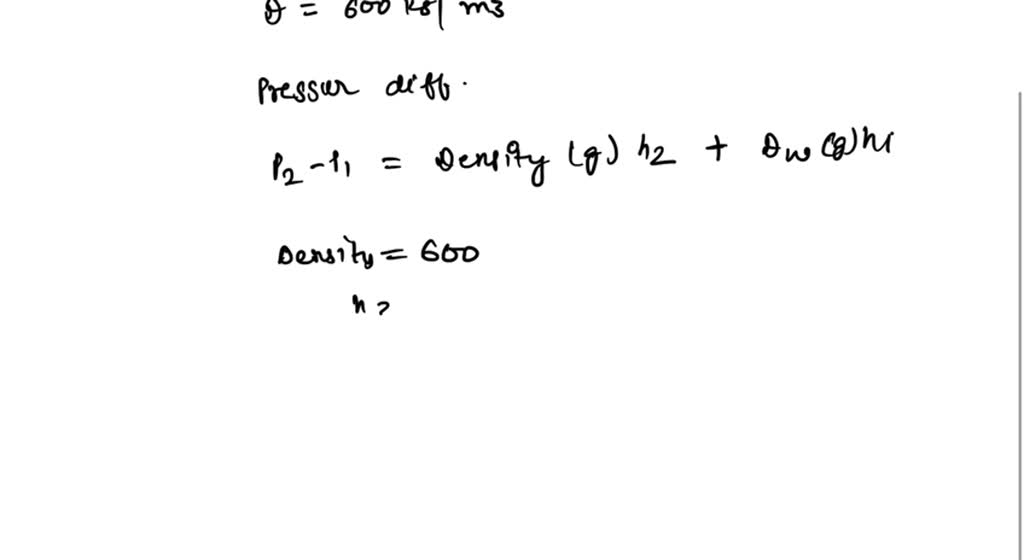 D = 600 kg/m3
Pressur diff.
P2-P1 = Density (g) h2 + Dw (g) h1
Density = 600
h2